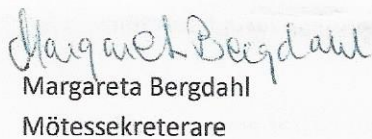 Margaret Bergdahl
Margareta Bergdahl
Mötessekreterare